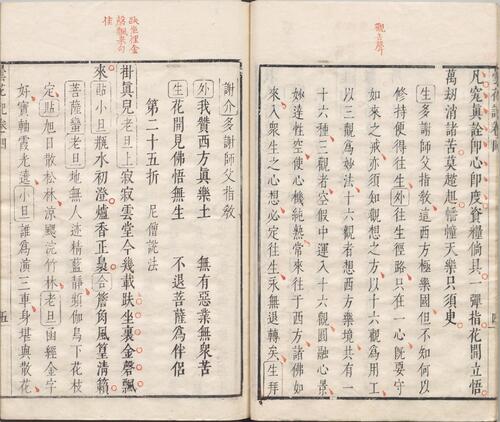 觀音聲
凡究眞詮卽心卽度資糧倘具一彈指花開立悟
萬刼消諸苦莫趑趄幢幡天樂只須更
生多謝師父指敎這西方極樂國但不知何以
修持便得往生外往生徑路只在一心旣要守
如來之戒亦須如觀想之方以十六觀爲用工
以三觀爲妙法十六觀者想西方樂境共有一
十六種三觀者空假中運入十六觀圓融心景
妙達性空使心機純熟常來往于西方諸佛如
來入衆生之心想必定往生永無退轉矣生拜
謝介多謝師父指敎
外我贊西方眞樂土 無有惡業無衆苦
生花開見佛悟無生 不退菩薩爲伴侶
第二十五折 尼僧說法
掛眞兒老旦上寂寂雲堂今幾載趺坐裏金磬飄
來貼小旦瓶水初澄爐香正裊合簷角風篁清籟
菩薩蠻老旦地無人迹精藍靜頻伽鳥下花枝
定貼旭日散松林凉颸浣竹林老旦函經金字
好寶軸霞光遶小旦誰爲演三車身堪與散花
曇花記卷四 五
趺坐裡金
磬飄來句
佳